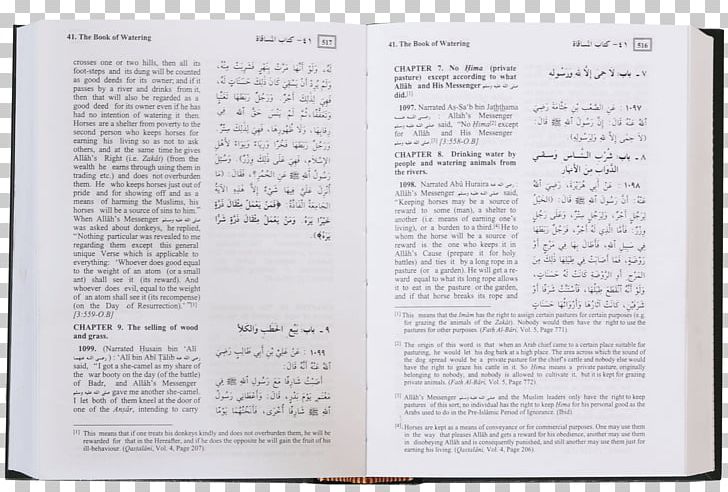 41. The Book of Watering
٤١- كتاب المساقاة
516
CHAPTER 7. No Hima (private
pasture) except according to what
Allâh and His Messenger ﷺ
did.[1]
1097. Narrated As-Sa'b bin Jaththama
Allâh's Messenger
ﷺ said, "No Hima[2] except
for Allâh and His Messenger
ﷺ." [3] [3:558-O.B]
CHAPTER 8. Drinking water by
people and watering animals from
the rivers.
1098. Narrated Abû Huraira
Allâh's Messenger ﷺ said,
"Keeping horses may be a source of
reward to some (man), a shelter to
another (i.e. means of earning one's
living), or a burden to a third.[4] He to
whom the horse will be a source of
reward is the one who keeps it in
Allâh's Cause (prepare it for holy
battles) and ties it by a long rope in a
pasture (or a garden). He will get a re-
ward equal to what its long rope allows
it to eat in the pasture or the garden,
and if that horse breaks its rope and
٧ - باب: لا حمى إلا لله ورسوله
١٠٩٧- عن الصَّعْبِ بن جَثَّامَةَ رَضِيَ
اللهُ عَنْهُ قَالَ: إنَّ رَسُولَ اللهِ ﷺ قَالَ:
(لا حِمَى إلَّا لِلَّهِ وَلِرَسُولِهِ).
٨ - باب: شرب النَّاس وسقي
الدَّوَاب من الأنهار
١٠٩٨- عَنْ أَبي هُرَيْرَةَ، رَضِيَ اللهُ
عَنْهُ: أنَّ رَسُولَ اللهِ ﷺ قَالَ: (الخَيْلُ
لِرَجُلٍ أَجْرٌ، وَلِرَجُلٍ سِتْرٌ، وَعَلَى رَجُلٍ
وِزْرٌ، فَأمَّا الَّذِي لَهُ أَجْرٌ: فَرَجُلٌ رَبَطَهَا
في سَبِيلِ اللهِ، فَأَطَالَ بِهَا في مَرْجٍ أَوْ
رَوْضَةٍ، فَمَا أَصَابَتْ في طِيَلِهَا ذٰلِكَ مِنَ
المَرْجِ أَوِ الرَّوْضَةِ كَانَتْ لَهُ حَسَنَاتٍ،
وَلَوْ أَنَّهُ انْقَطَعَ طِيَلُهَا، فَاسْتَنَّتْ شَرَفًا أَوْ
شَرَفَيْنِ، كَانَتْ آثَارُهَا وَأَرْوَاثُهَا حَسَنَاتٍ
[1] This means that the Imâm has the right to assign certain pastures for certain purposes (e.g.
for grazing the animals of the Zakât). Nobody would then have the right to use the
pastures for other purposes. (Fath Al-Bâri, Vol. 5, Page 771).
[2] The origin of this word is that when an Arab chief came to a certain place suitable for
pasturing, he would let his dog bark at a high place. The area across which the sound of
the dog spread would be a private pasture for the chief's cattle and nobody else would
have the right to graze his cattle in it. So Hima means a private pasture, originally
belonging to nobody, and nobody is allowed to cultivate it, but it is kept for grazing
private animals. (Fath Al-Bâri, Vol. 5, Page 772).
[3] Allâh's Messenger ﷺ and the Muslim leaders only have the right to keep
pastures of this sort, no individual has the right to keep Hima for his personal good as the
Arabs used to do in the Pre-Islâmic Period of Ignorance. (Ibid).
[4] Horses are kept as a means of conveyance or for commercial purposes. One may use them
in the way that pleases Allâh and gets a reward for his obedience, another may use them
in disobeying Allâh and is consequently punished, and still another may use them just for
earning his living. (Qastalâni, Vol. 4, Page 206).
41. The Book of Watering
٤١- كتاب المساقاة
517
crosses one or two hills, then all its
foot-steps and its dung will be counted
as good deeds for its owner; and if it
passes by a river and drinks from it,
then that will also be regarded as a
good deed for its owner even if he has
had no intention of watering it then.
Horses are a shelter from poverty to the
second person who keeps horses for
earning his living so as not to ask
others, and at the same time he gives
Allâh's Right (i.e. Zakât) (from the
wealth he earns through using them in
trading etc.) and does not overburden
them. He who keeps horses just out of
pride and for showing off and as a
means of harming the Muslims, his
horses will be a source of sins to him."
When Allâh's Messenger ﷺ
was asked about donkeys, he replied,
"Nothing particular was revealed to me
regarding them except this general
unique Verse which is applicable to
everything: 'Whoever does good equal
to the weight of an atom (or a small
ant) shall see it (its reward). And
whoever does evil, equal to the weight
of an atom shall see it (its recompense)
(on the Day of Resurrection).'"[1]
[3:559-O.B]
CHAPTER 9. The selling of wood
and grass.
1099. (Narrated Husain bin 'Alî
) : 'Alî bin Abî Tâlib
said, "I got a she-camel as my share of
the war booty on the day (of the battle)
of Badr, and Allâh's Messenger
ﷺ gave me another she-camel.
I let both of them kneel at the door of
one of the Ansâr, intending to carry
لَهُ، وَلَوْ أَنَّهَا مَرَّتْ بِنَهْرٍ فَشَرِبَتْ مِنْهُ،
وَلَمْ يُرِدْ أَنْ يَسْقِيَ كَانَ ذٰلِكَ حَسَنَاتٍ لَهُ،
فَهِيَ لِذٰلِكَ أَجْرٌ. وَرَجُلٌ رَبَطَهَا تَغَنِّيًا
وَتَعَفُّفًا، ثُمَّ لَمْ يَنْسَ حَقَّ اللهِ في
رِقَابِهَا، وَلا ظُهُورِهَا، فَهِيَ لِذٰلِكَ سِتْرٌ.
وَرَجُلٌ رَبَطَهَا فَخْرًا وَرِيَاءً وَنِوَاءً لأَهْلِ
الإِسْلاَمِ، فَهِيَ عَلَى ذٰلِكَ وِزْرٌ). وَسُئِلَ
رَسُولُ اللهِ ﷺ عَنِ الحُمُرِ؟، فَقَالَ: (مَا
أُنْزِلَ عَلَيَّ فِيهَا شَيْءٌ إِلَّا هٰذِهِ الآيَةُ
الجَامِعَةُ الْفَاذَّةُ: ﴿فَمَن يَعْمَلْ مِثْقَالَ ذَرَّةٍ
خَيْرًا يَرَهُ ۝ وَمَن يَعْمَلْ مِثْقَالَ ذَرَّةٍ شَرًّا
يَرَهُ﴾).
٩ - باب: بَيْعُ الحَطَبِ وَالكَلأِ
١٠٩٩- عَنْ عَلِيِّ بْنِ أَبِي طَالِبٍ رَضِيَ
اللهُ عَنْهُ أَنَّهُ قَالَ:
أَصَبْتُ شَارِفًا مَعَ رَسُولِ اللهِ ﷺ في
مَغْنَمٍ يَوْمَ بَدْرٍ، قَالَ: وَأَعْطَانِي رَسُولُ
اللهِ ﷺ شَارِفًا أُخْرَى، فَأَنَخْتُهُمَا يَوْمًا
[1] This means that if one treats his donkeys kindly and does not overburden them, he will be
rewarded for that in the Hereafter, and if he does the opposite he will gain the fruit of his
ill-behaviour. (Qastalâni, Vol. 4, Page 207).